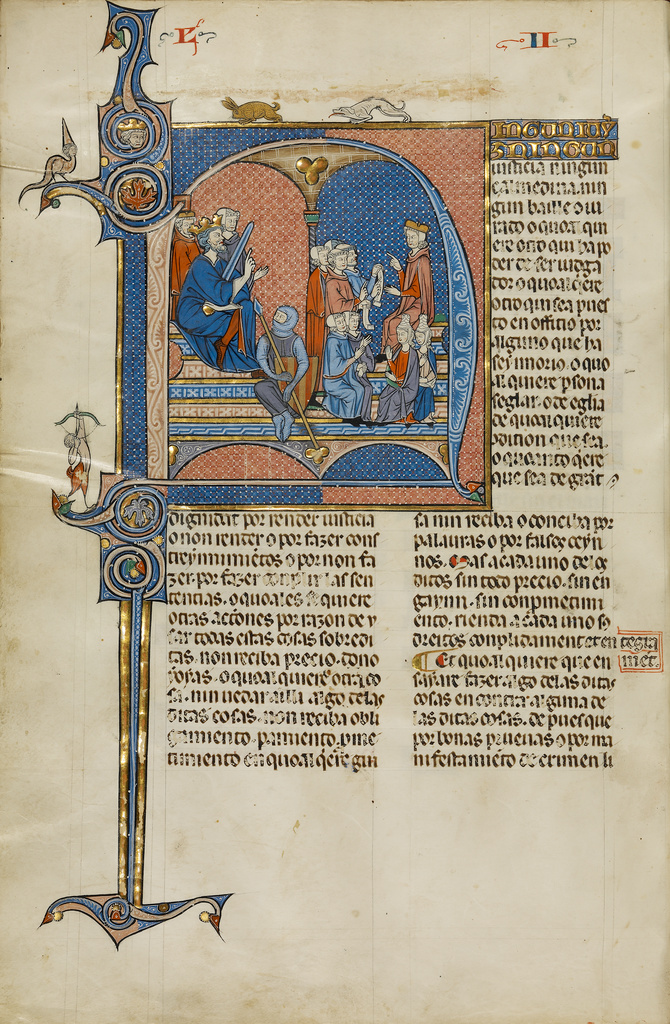 L II
NGUN IUY
Z NI NGUN
iusticia ningun
calmedina nin
gun baille o iu
rado o quoal qui
ere otro qui ha po
der de ser iudga
dor o quoal qere
otro qui sea pues
to en officio por
alguno que ha
seynnorio. o quo
al quiere psona
seglar. o de eglia
de quoal quiere
dition que sea.
o quanto qere
que sea de grat
dignidat por render iusticia
o non render o por fazer cons
treynnimietos o por non fa
zer. por fazer las sen
tencias. o quoales quiere
otras actiones por razon de y
far todas estas cosas sobredi
tas. non reciba precio. dono
ioyas. o quoal quiere otra co
sa. nin uedar ailla algo delas
ditas cosas. non reciba obli
gamiento. paramiento. pme
timiento en quoal qere gui
sa nin reciba o conciba por
palauras o por falsos ceyn
nos. Mas a cada uno delos
ditos sin todo precio. sin en
gaynno. sin conpmetimi
ento. rienda a cada uno so
dreitos complidament et en tegra
met.
Et quoal quiere que en
sayare fazer algo delas ditas
cosas en contra alguna de
las ditas cosas. de pues que
por bonas prueuas o por ma
nifestamieto de crimen li